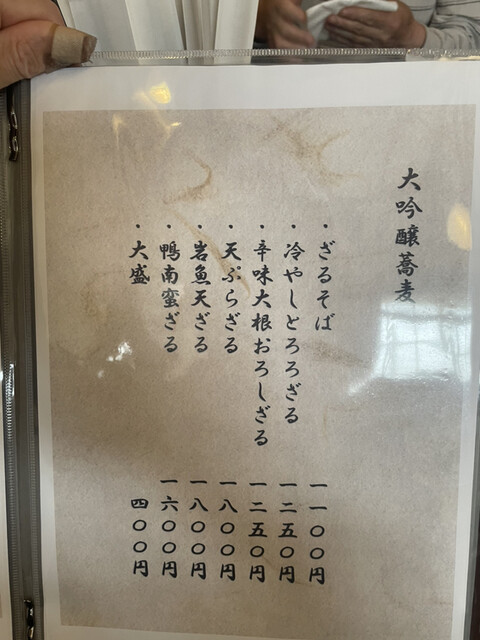 大吟醸蕎麦
・ざるそば 一一〇〇円
・冷やしとろろざる 一二五〇円
・辛味大根おろしざる 一二五〇円
・天ぷらざる 一八〇〇円
・岩魚天ざる 一八〇〇円
・鴨南蛮ざる 一六〇〇円
・大盛 四〇〇円